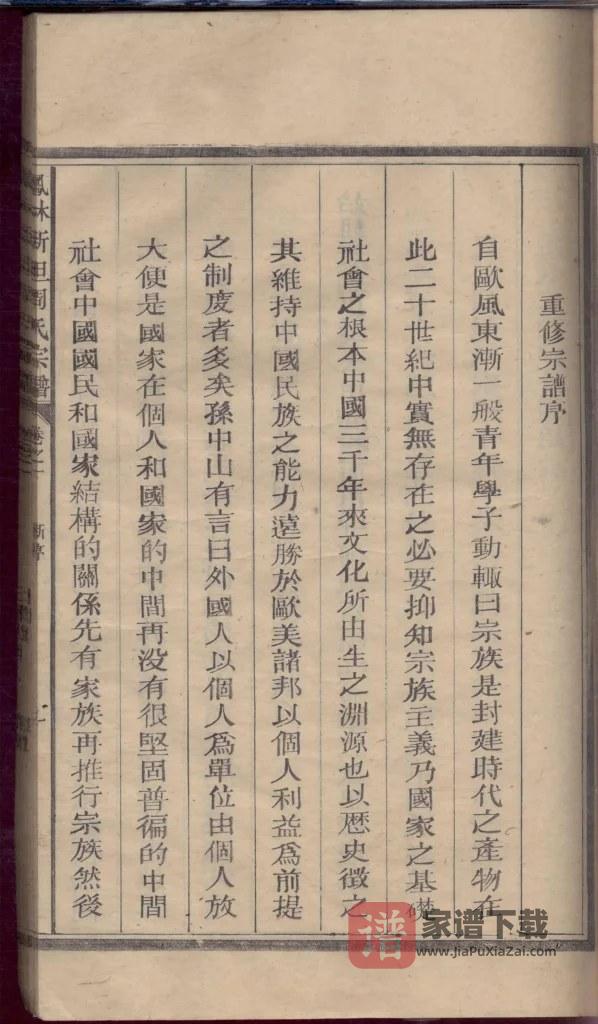 重修宗譜序
自歐風東漸一般青年學子動輒曰宗族是封建時代之產物在
此二十世紀中實無存在之必要抑知宗族主義乃國家之基礎
社會之根本中國三千年來文化所由生之淵源也以歷史徵之
其維持中國民族之能力遠勝於歐美諸邦以個人利益爲前提
之制度者多矣孫中山有言曰外國人以個人爲單位由個人放
大便是國家在個人和國家的中間再没有很堅固普徧的中間
社會中國國民和國家結構的關係先有家族再推行宗族然後
鳳林新田周氏宗譜
卷之
新序
谱
家谱下载
www.jiaPuXiaZai.com